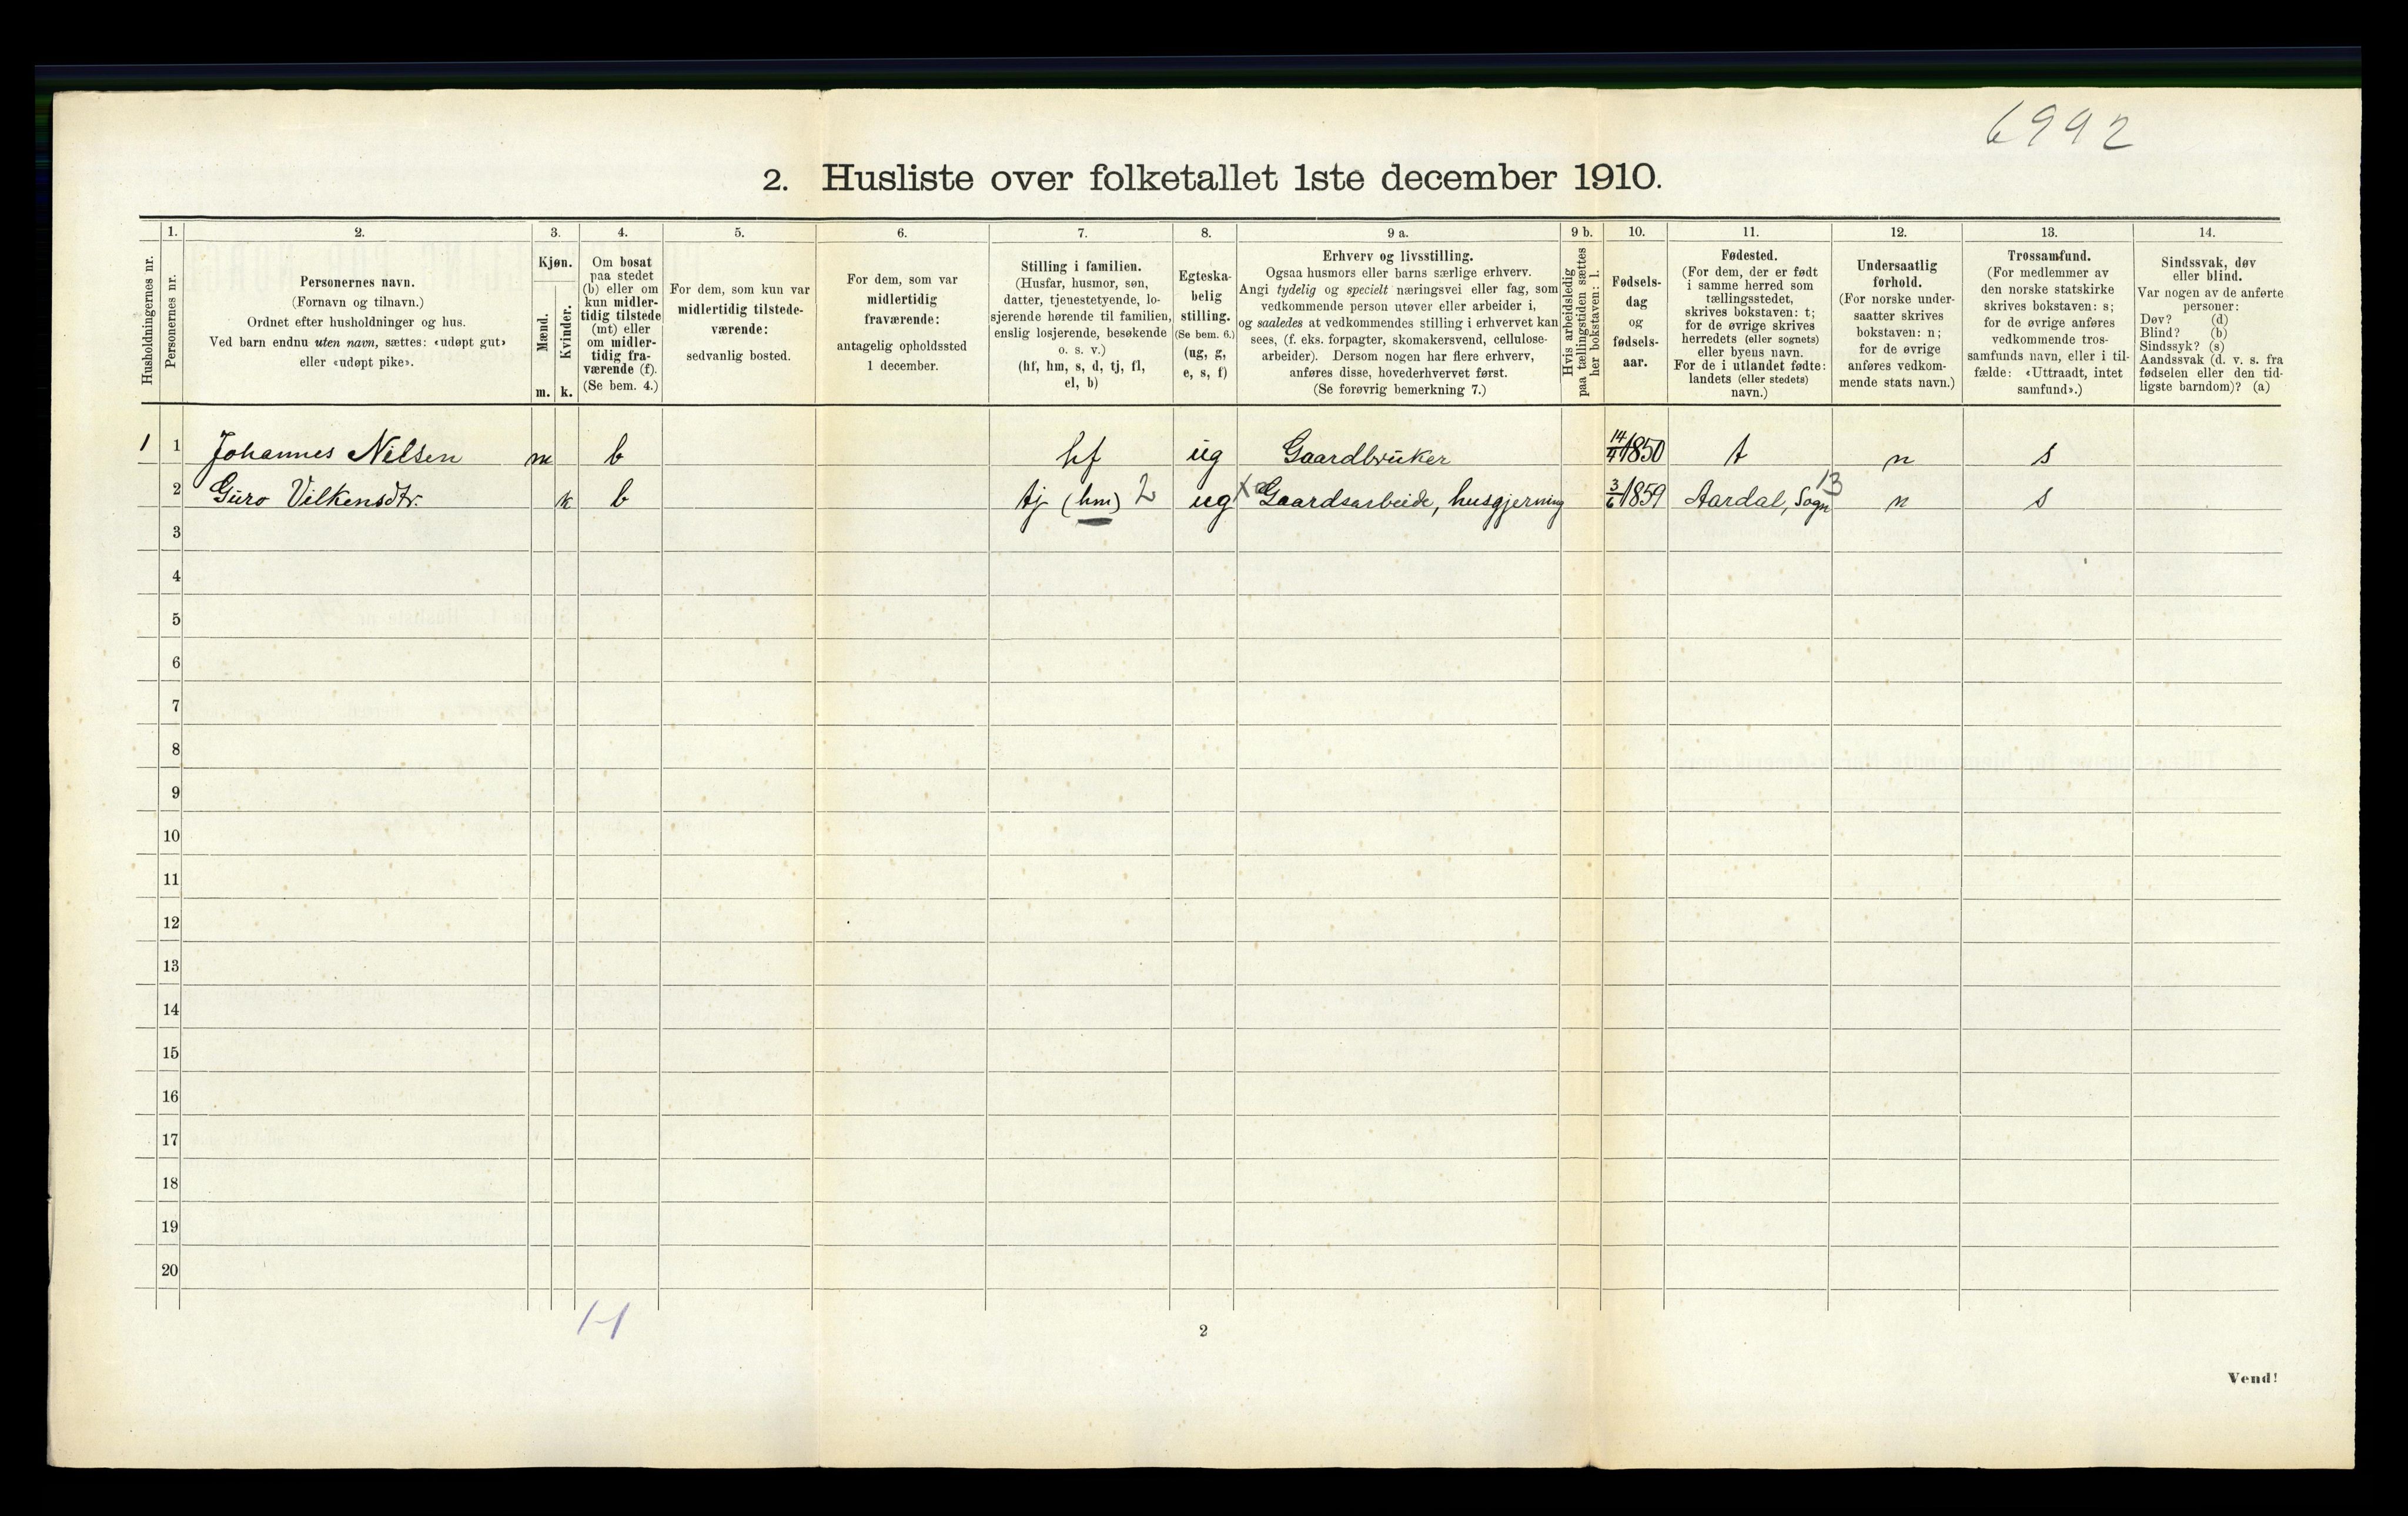 6992
2. Husliste over folketallet 1ste december 1910.
Husholdningernes nr.
1.
Personernes nr.
2.
Personernes navn.
(Fornavn og tilnavn.)
Ordnet efter husholdninger og hus.
Ved barn endnu uten navn, sættes: «udøpt gut»
eller «udøpt pike».
3.
Kjøn.
Mænd.
Kvinder.
m. k.
4.
Om bosat
paa stedet
(b) eller om
kun midler-
tidig tilstede
(mt) eller
om midler-
tidig fra-
værende (f).
(Se bem. 4.)
5.
For dem, som kun var
midlertidig tilstede-
værende:
sedvanlig bosted.
6.
For dem, som var
midlertidig
fraværende:
antagelig opholdssted
1 december.
7.
Stilling i familien.
(Husfar, husmor, søn,
datter, tjenestetyende, lo-
sjerende hørende til familien,
enslig losjerende, besøkende
o. s. v.)
(hf, hm, s, d, tj, fl,
el, b)
8.
Egteska-
belig
stilling.
(Se bem. 6.)
(ug, g,
e, s, f)
9 a.
Erhverv og livsstilling.
Ogsaa husmors eller barns særlige erhverv.
Angi tydelig og specielt næringsvei eller fag, som
vedkommende person utøver eller arbeider i,
og saaledes at vedkommendes stilling i erhvervet kan
sees, (f. eks. forpagter, skomakersvend, cellulose-
arbeider). Dersom nogen har flere erhverv,
anføres disse, hovederhvervet først.
(Se forøvrig bemerkning 7.)
9 b.
Hvis arbeidsledig
paa tællingstiden sættes
her bokstaven: l.
10.
Fødsels-
dag
og
fødsels-
aar.
11.
Fødested.
(For dem, der er født
i samme herred som
tællingsstedet,
skrives bokstaven: t;
for de øvrige skrives
herredets (eller sognets)
eller byens navn.
For de i utlandet fødte:
landets (eller stedets)
navn.)
12.
Undersaatlig
forhold.
(For norske under-
saatter skrives
bokstaven: n;
for de øvrige
anføres vedkom-
mende stats navn.)
13.
Trossamfund.
(For medlemmer av
den norske statskirke
skrives bokstaven: s;
for de øvrige anføres
vedkommende tros-
samfunds navn, eller i til-
fælde: «Uttraadt, intet
samfund».)
14.
Sindssvak, døv
eller blind.
Var nogen av de anførte
personer:
Døv? (d)
Blind? (b)
Sindssyk? (s)
Aandssvak (d. v. s. fra
fødselen eller den tid-
ligste barndom)? (a)
1 1 Johannes Nilsen m b hf ug Gaardbruker 1850 t n s
2 Guro Vilkensdtr. k b tj (hm) 2 ug X Gaardsarbeide, husgjerning 3/6 1859 Aardal, Sogn 13 n s
3
4
5
6
7
8
9
10
11
12
13
14
15
16
17
18
19
20
1-1
2
Vend!